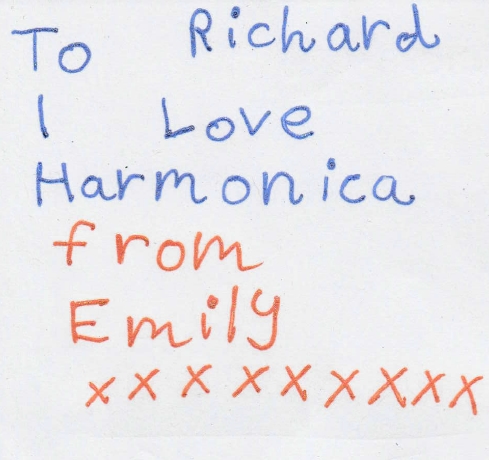 To Richard
I Love
Harmonica
from
Emily
xxxxxxxxx